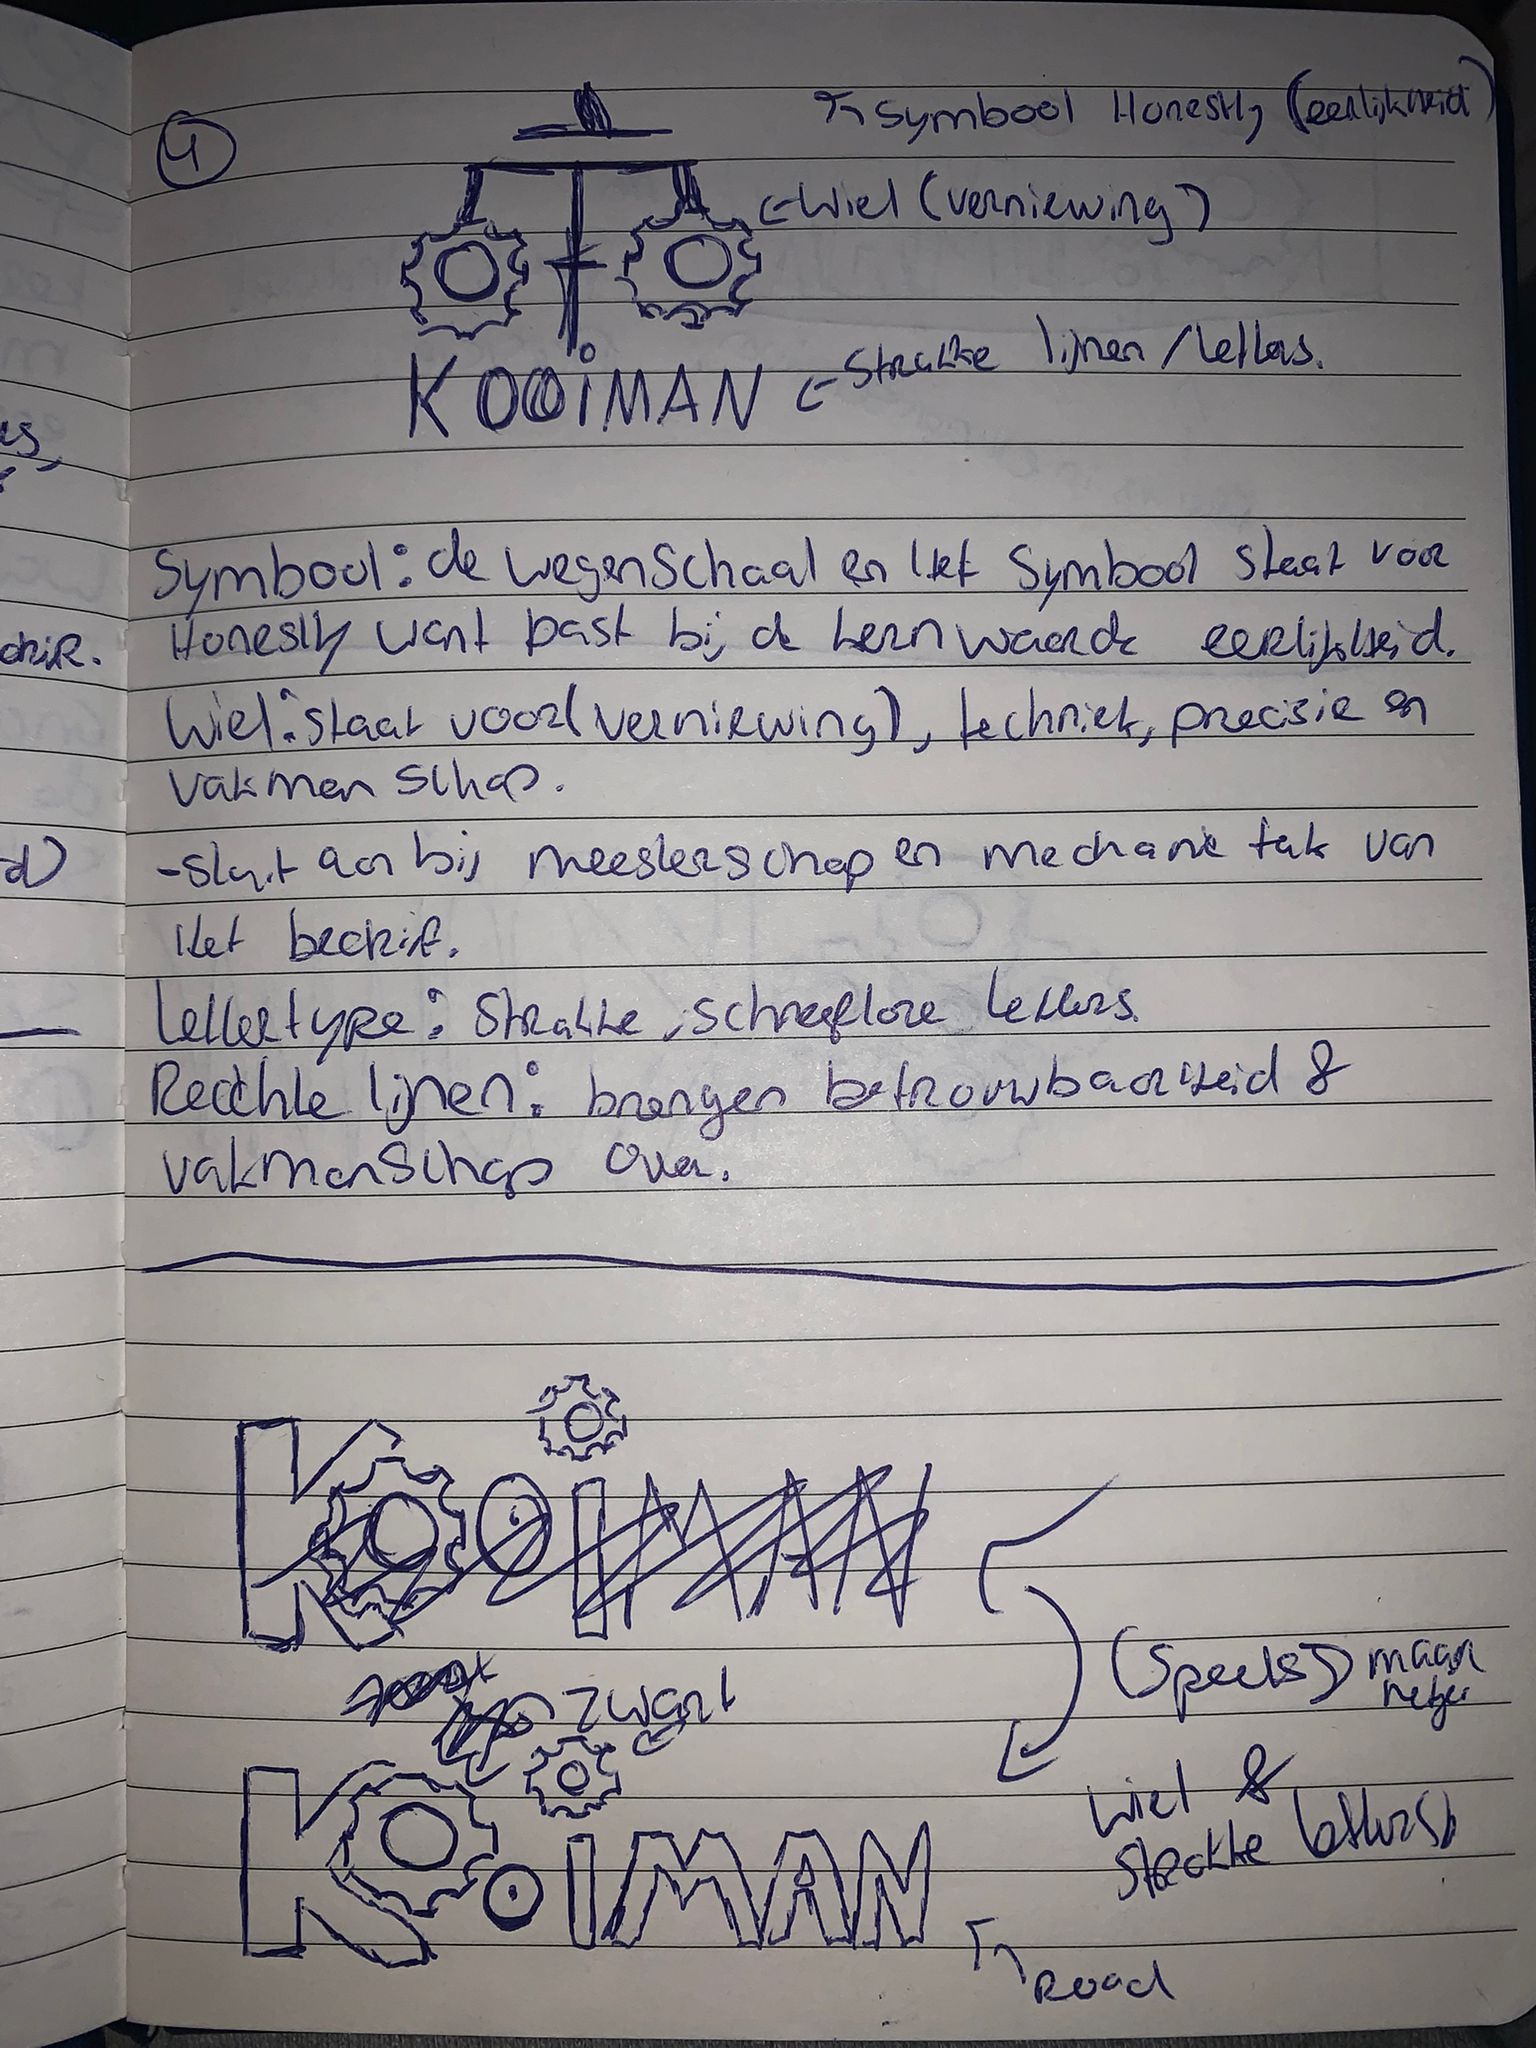 4
↖ Symbool Honesty (eerlijkheid)
← Wiel (verniewing)
KOOiMAN ← Strakke lijnen / letters.
es,
Symbool: de wegenschaal en het symbool staat voor
Honesty want past bij de kern waarde eerlijkheid.
Wiel: staat voor (verniewing), techniek, precisie en
vakmanschap.
d)
- sluit aan bij meesterschap en mechanie tak van
het bedrijf.
Lettertype: Strakke, schreefloze letters.
Rechte lijnen: brengen betrouwbaarheid &
vakmanschap over.
KOOIMAN
(Speels) maar
netjes
zwart
KOOIMAN
wiel &
strakke letters)
↖ Rood